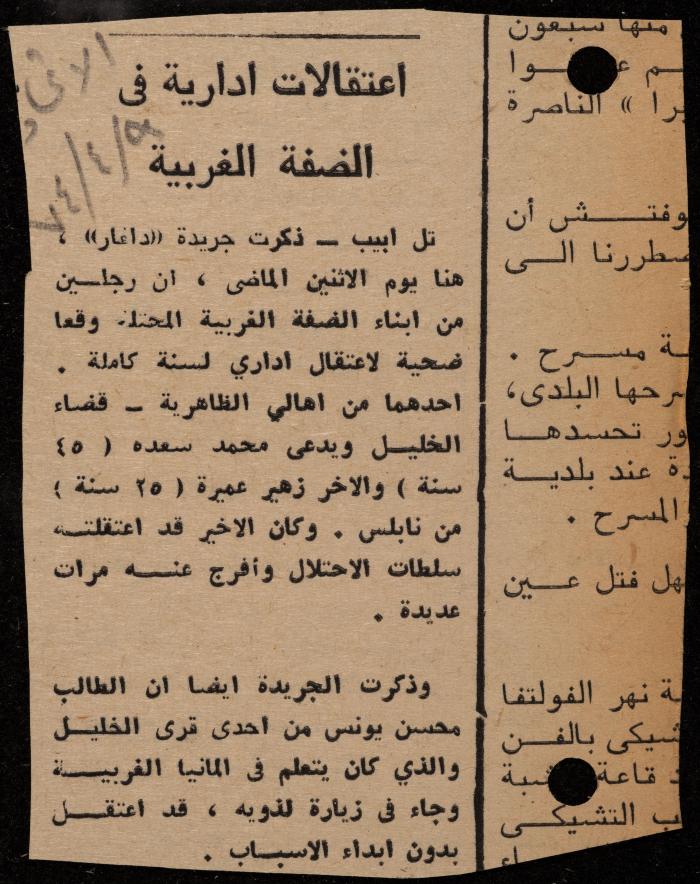 اعتقالات ادارية فى
الضفة الغربية
تل ابيب ــ ذكرت جريدة ((دافار)) ،
هنا يوم الاثنين الماضى ، ان رجلين
من ابناء الضفة الغربية المحتلة وقعا
ضحية لاعتقال اداري لسنة كاملة .
احدهما من اهالي الظاهرية ــ قضاء
الخليل ويدعى محمد سعده ( ٤٥
سنة ) والاخر زهير عميرة ( ٢٥ سنة )
من نابلس . وكان الاخير قد اعتقلته
سلطات الاحتلال وأفرج عنه مرات
عديدة .
وذكرت الجريدة ايضا ان الطالب
محسن يونس من احدى قرى الخليل
والذي كان يتعلم فى المانيا الغربية
وجاء فى زيارة لذويه ، قد اعتقل
بدون ابداء الاسباب .
منها سبعون
برا » الناصرة
وفتش أن
ضطررنا الى
ة مسرح .
رحها البلدى،
ور تحسدها
ة عند بلدية
المسرح .
هل فتل عين
ة نهر الفولتفا
شيكى بالفن
قاعة
ب التشيكى